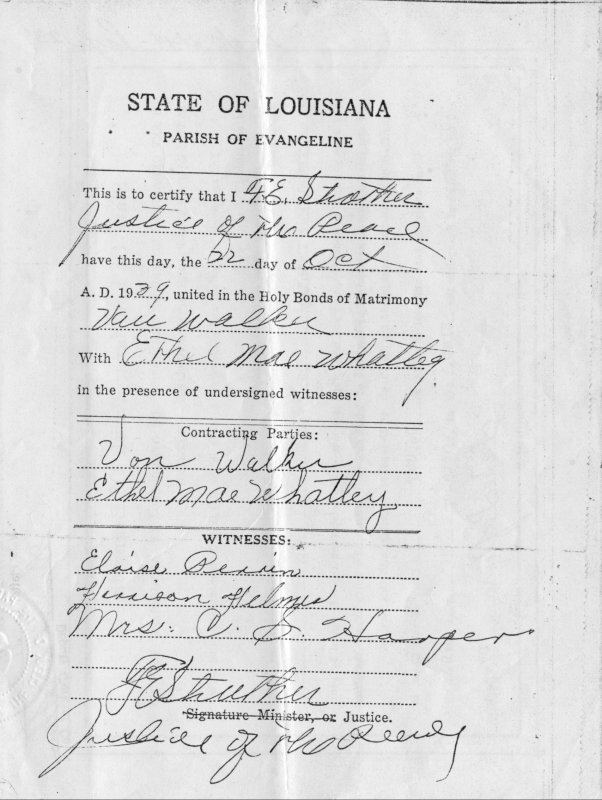 STATE OF LOUISIANA
PARISH OF EVANGELINE
This is to certify that I F. E. Strother
Justice of the Peace
have this day, the 22 day of Oct
A. D. 1939, united in the Holy Bonds of Matrimony
Van Walker
With Ethel Mae Whatley
in the presence of undersigned witnesses:
Contracting Parties:
Von Walker
Ethel Mae Whatley
WITNESSES:
Eloise Perrin
Harrison Helms
Mrs. C. S. Harper
F E Struther
Signature Minister, or Justice.
Justice of the Peace